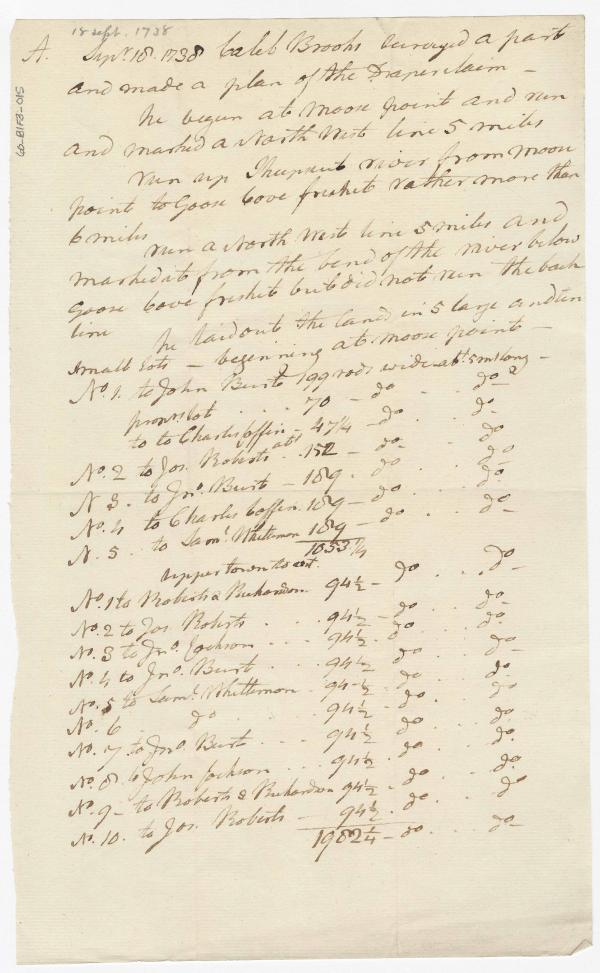 18 sept. 1738
60-B1F3-015
A. Sepr. 18. 1738 Caleb Brooks surveyed a part
and made a plan of the Drapers claim —
he begun at Moose point and run
and marked a North West line 5 miles
run up river from Moose
point to Goose Cove freshet rather more than
6 miles
run a North West line 5 miles and
marked it from the bend of the river below
Goose Cove freshet but did not run the back
line
he laid out the land in 5 large and ten
small lots — beginning at Moose point —
No. 1. to John Burt 199 rods wide abt. 5 ms long —
lot . . . 70 — do . . do
to to Charles Coffin — 47¼ — do . . do
No. 2 to Jos. Roberts abt . 152 — do . . do
N 3. to Jno. Burt — 189 . do . . do
No. 4 to Charles Coffin . 189 — do . . do
N. 5 . to Saml. Whittemon 189 — do . . do —
1033¼
upper town to
No. 1 to Roberts & Richardson . 94½ — do . . do —
No. 2 to Jos Roberts . . . 94½ — do . . do
No. 3 to Jno. Jackson . . . 94½ . do . . do
No. 4 to Jno. Burt . . . 94½ do . . do —
No. 5 to Saml. Whittemon . . 94½ . do . . do
No. 6 . do . . . 94½ — do . . do
No. 7 to Jno. Burt . . . 94½ . do . . do
No. 8 to John Jackson . . . 94½ . do . . do
No. 9 — to Roberts & Richardson 94½ — do . . do
No. 10. to Jos. Roberts — 94½ . do . . do
1982¼ — do . . do —